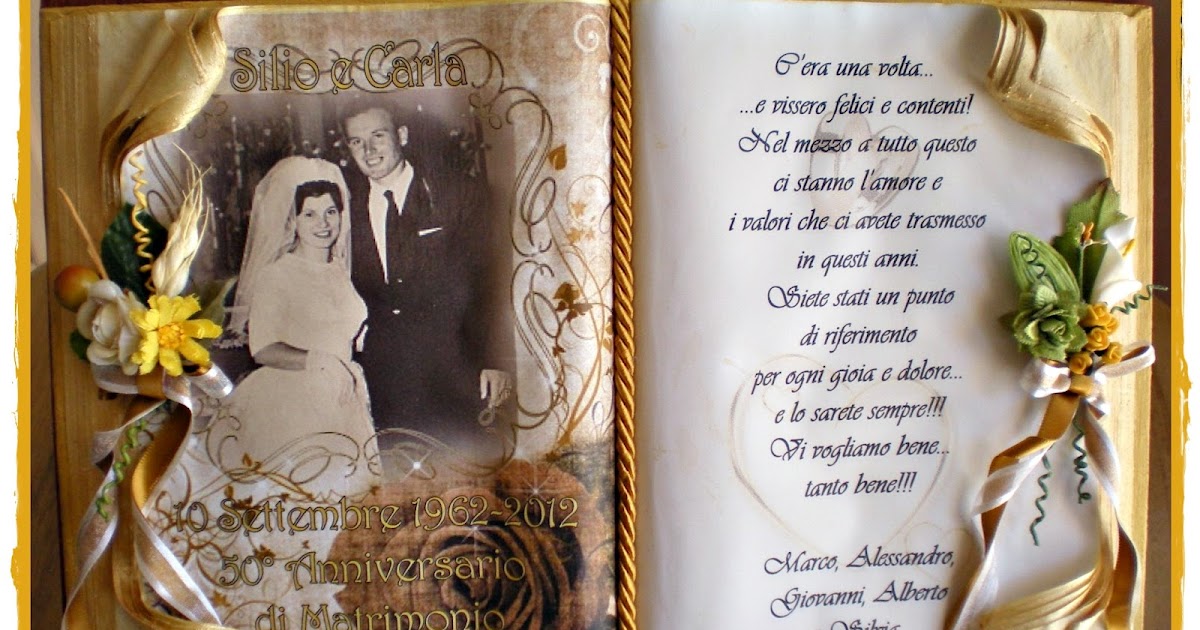 Silio e Carla
10 Settembre 1962-2012
50° Anniversario
di Matrimonio
C'era una volta...
...e vissero felici e contenti!
Nel mezzo a tutto questo
ci stanno l'amore e
i valori che ci avete trasmesso
in questi anni.
Siete stati un punto
di riferimento
per ogni gioia e dolore...
e lo sarete sempre!!!
Vi vogliamo bene...
tanto bene!!!
Marco, Alessandro,
Giovanni, Alberto
Silvia